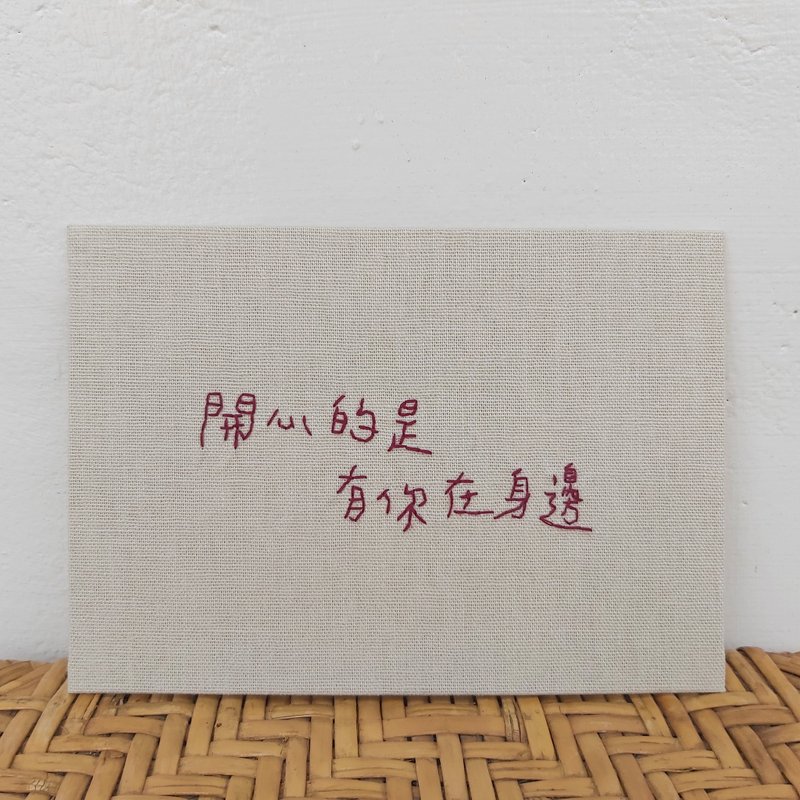 開心的是
有你在身邊